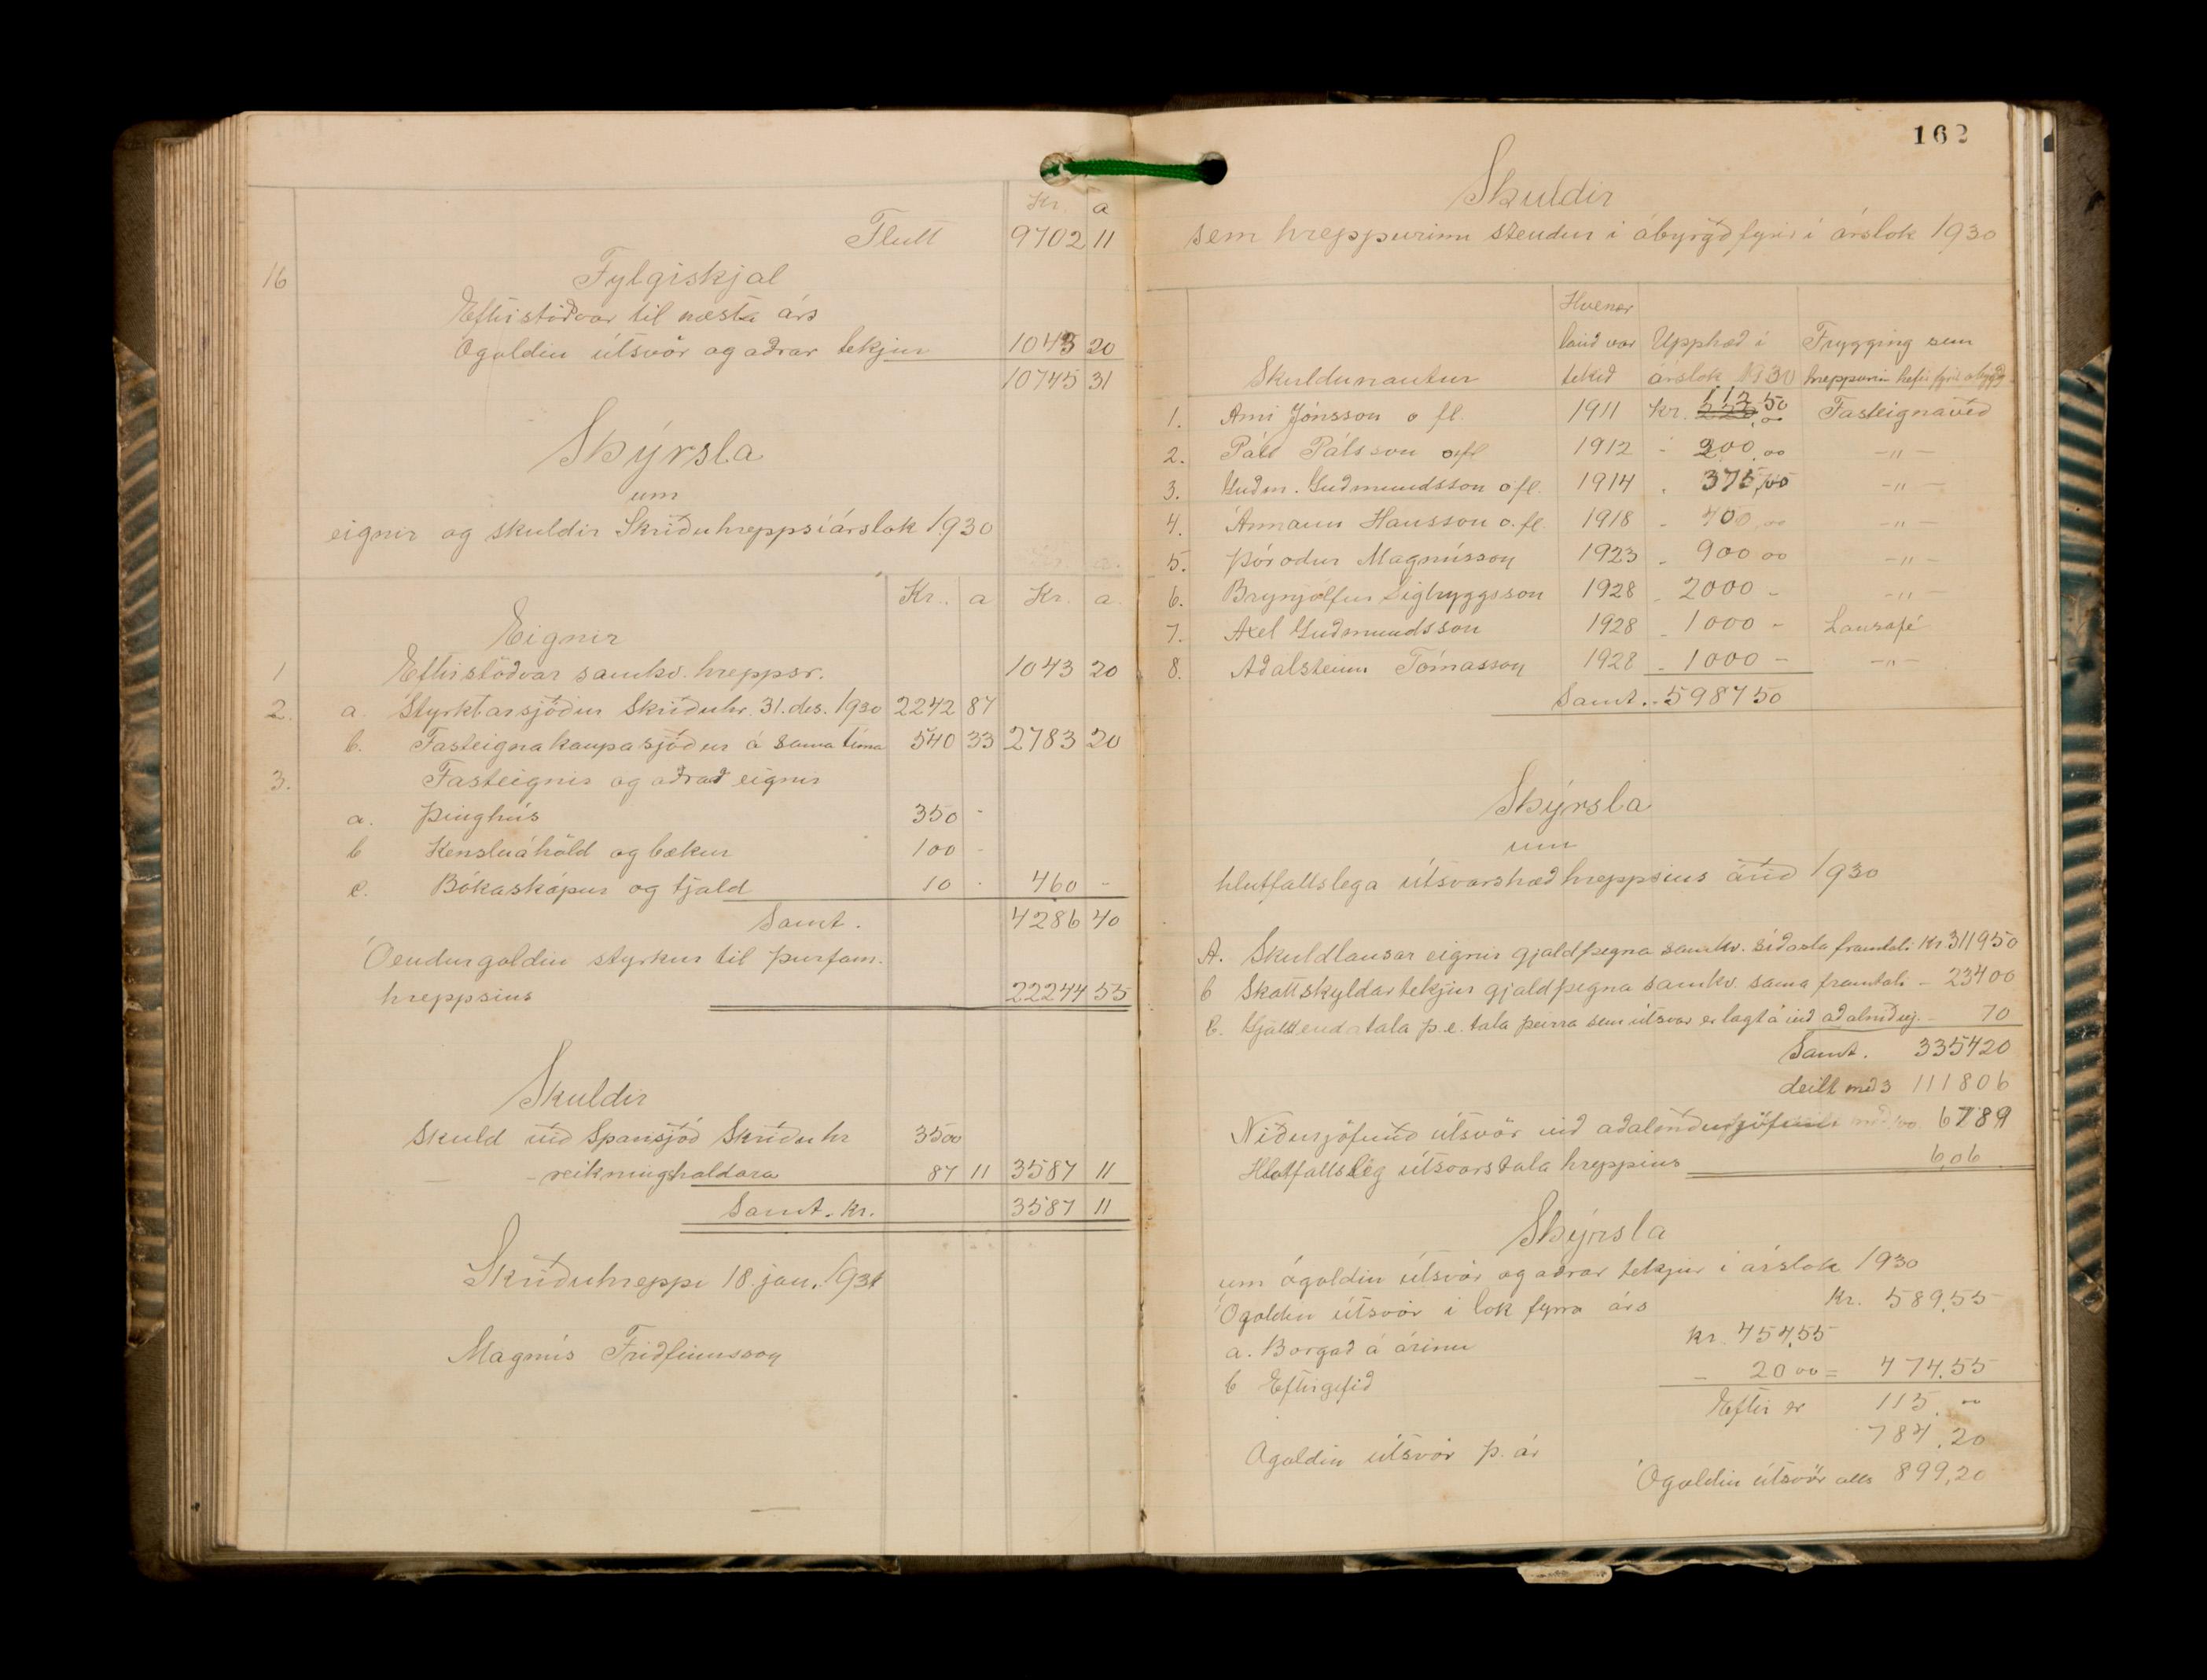 Kr. a
Flutt 9702 11
16 Fylgiskjal
Eftirstöðvar til næsta árs
Ógoldin útsvör og aðrar tekjur 1043 20
10745 31
Skýrsla
um
eignir og skuldir Skriðuhrepps í árslok 1930
Kr. a Kr. a.
Eignir
1 Eftirstöðvar samkv. hreppsr. 1043 20
2. a. Styrktarsjóður Skriðuhr. 31. des. 1930 2242 87
b. Fasteignakaupasjóður á sama tíma 540 33 2783 20
3. Fasteignir og aðrar eignir
a. Þinghús 350 -
b Kensluáhöld og bækur 100 -
c. Bókaskápur og tjald 10 - 460 -
Samt. 4286 40
Óendurgoldin styrkur til þurfam.
hreppsins 22244 55
Skuldir
Skuld við Sparisjóð Skriðuhr 3500
— - reikningshaldara 87 11 3587 11
Samt. kr. 3587 11
Skriðuhreppi 18. jan. 1931
Magnús Friðfinnsson
162
Skuldir
sem hreppurinn stendur í ábyrgð fyrir í árslok 1930
Hvenær
lánið var Upphæð í Trygging sem
Skuldunautur tekið árslok 1930 hreppurin hefir fyrir ábyrgð
1. Árni Jónsson o fl. 1911 Kr. 112,50 Fasteignaveð
2. Páll Pálsson ofl 1912 - 200,00 -"-
3. Guðm. Guðmundsson o fl. 1914 - 375,00 -"-
4. Ármann Hansson o. fl. 1918 - 400,00 -"-
5. Þóroður Magnússon 1923 - 900 00 -"-
6. Brynjólfur Sigtryggsson 1928 - 2000 - -"-
7. Axel Guðmundsson 1928 - 1000 - Lausafé
8. Aðalsteinn Tómasson 1928 - 1000 - -"-
Samt. - 5987 50
Skýrsla
um
hlutfallslega útsvarshæð hreppsins árið 1930
A. Skuldlausar eignir gjaldþegna samkv. síðasta framtali Kr 311950
b Skattskyldar tekjur gjaldþegna samkv. sama framtali - 23400
c. Gjaldendatala þ.e. tala þeirra sem útsvar er lagt á við aðalniðurj. - 70
Samt. 335420
deilt með 3 111806
Niðurjöfnuð útsvör við aðalniðurjöfnun 6789
Hlutfallsleg útsvarstala hreppsins 6,06
Skýrsla
um ógoldin útsvör og aðrar tekjur í árslok 1930
Ógoldin útsvör í lok fyrra árs Kr. 589,55
a. Borgað á árinu kr. 454,55
b Eftirgefið - 20 00 = 474,55
Eftir er 115.00
Ógoldin útsvör þ. ár 784,20
Ógoldin útsvör alls 899,20